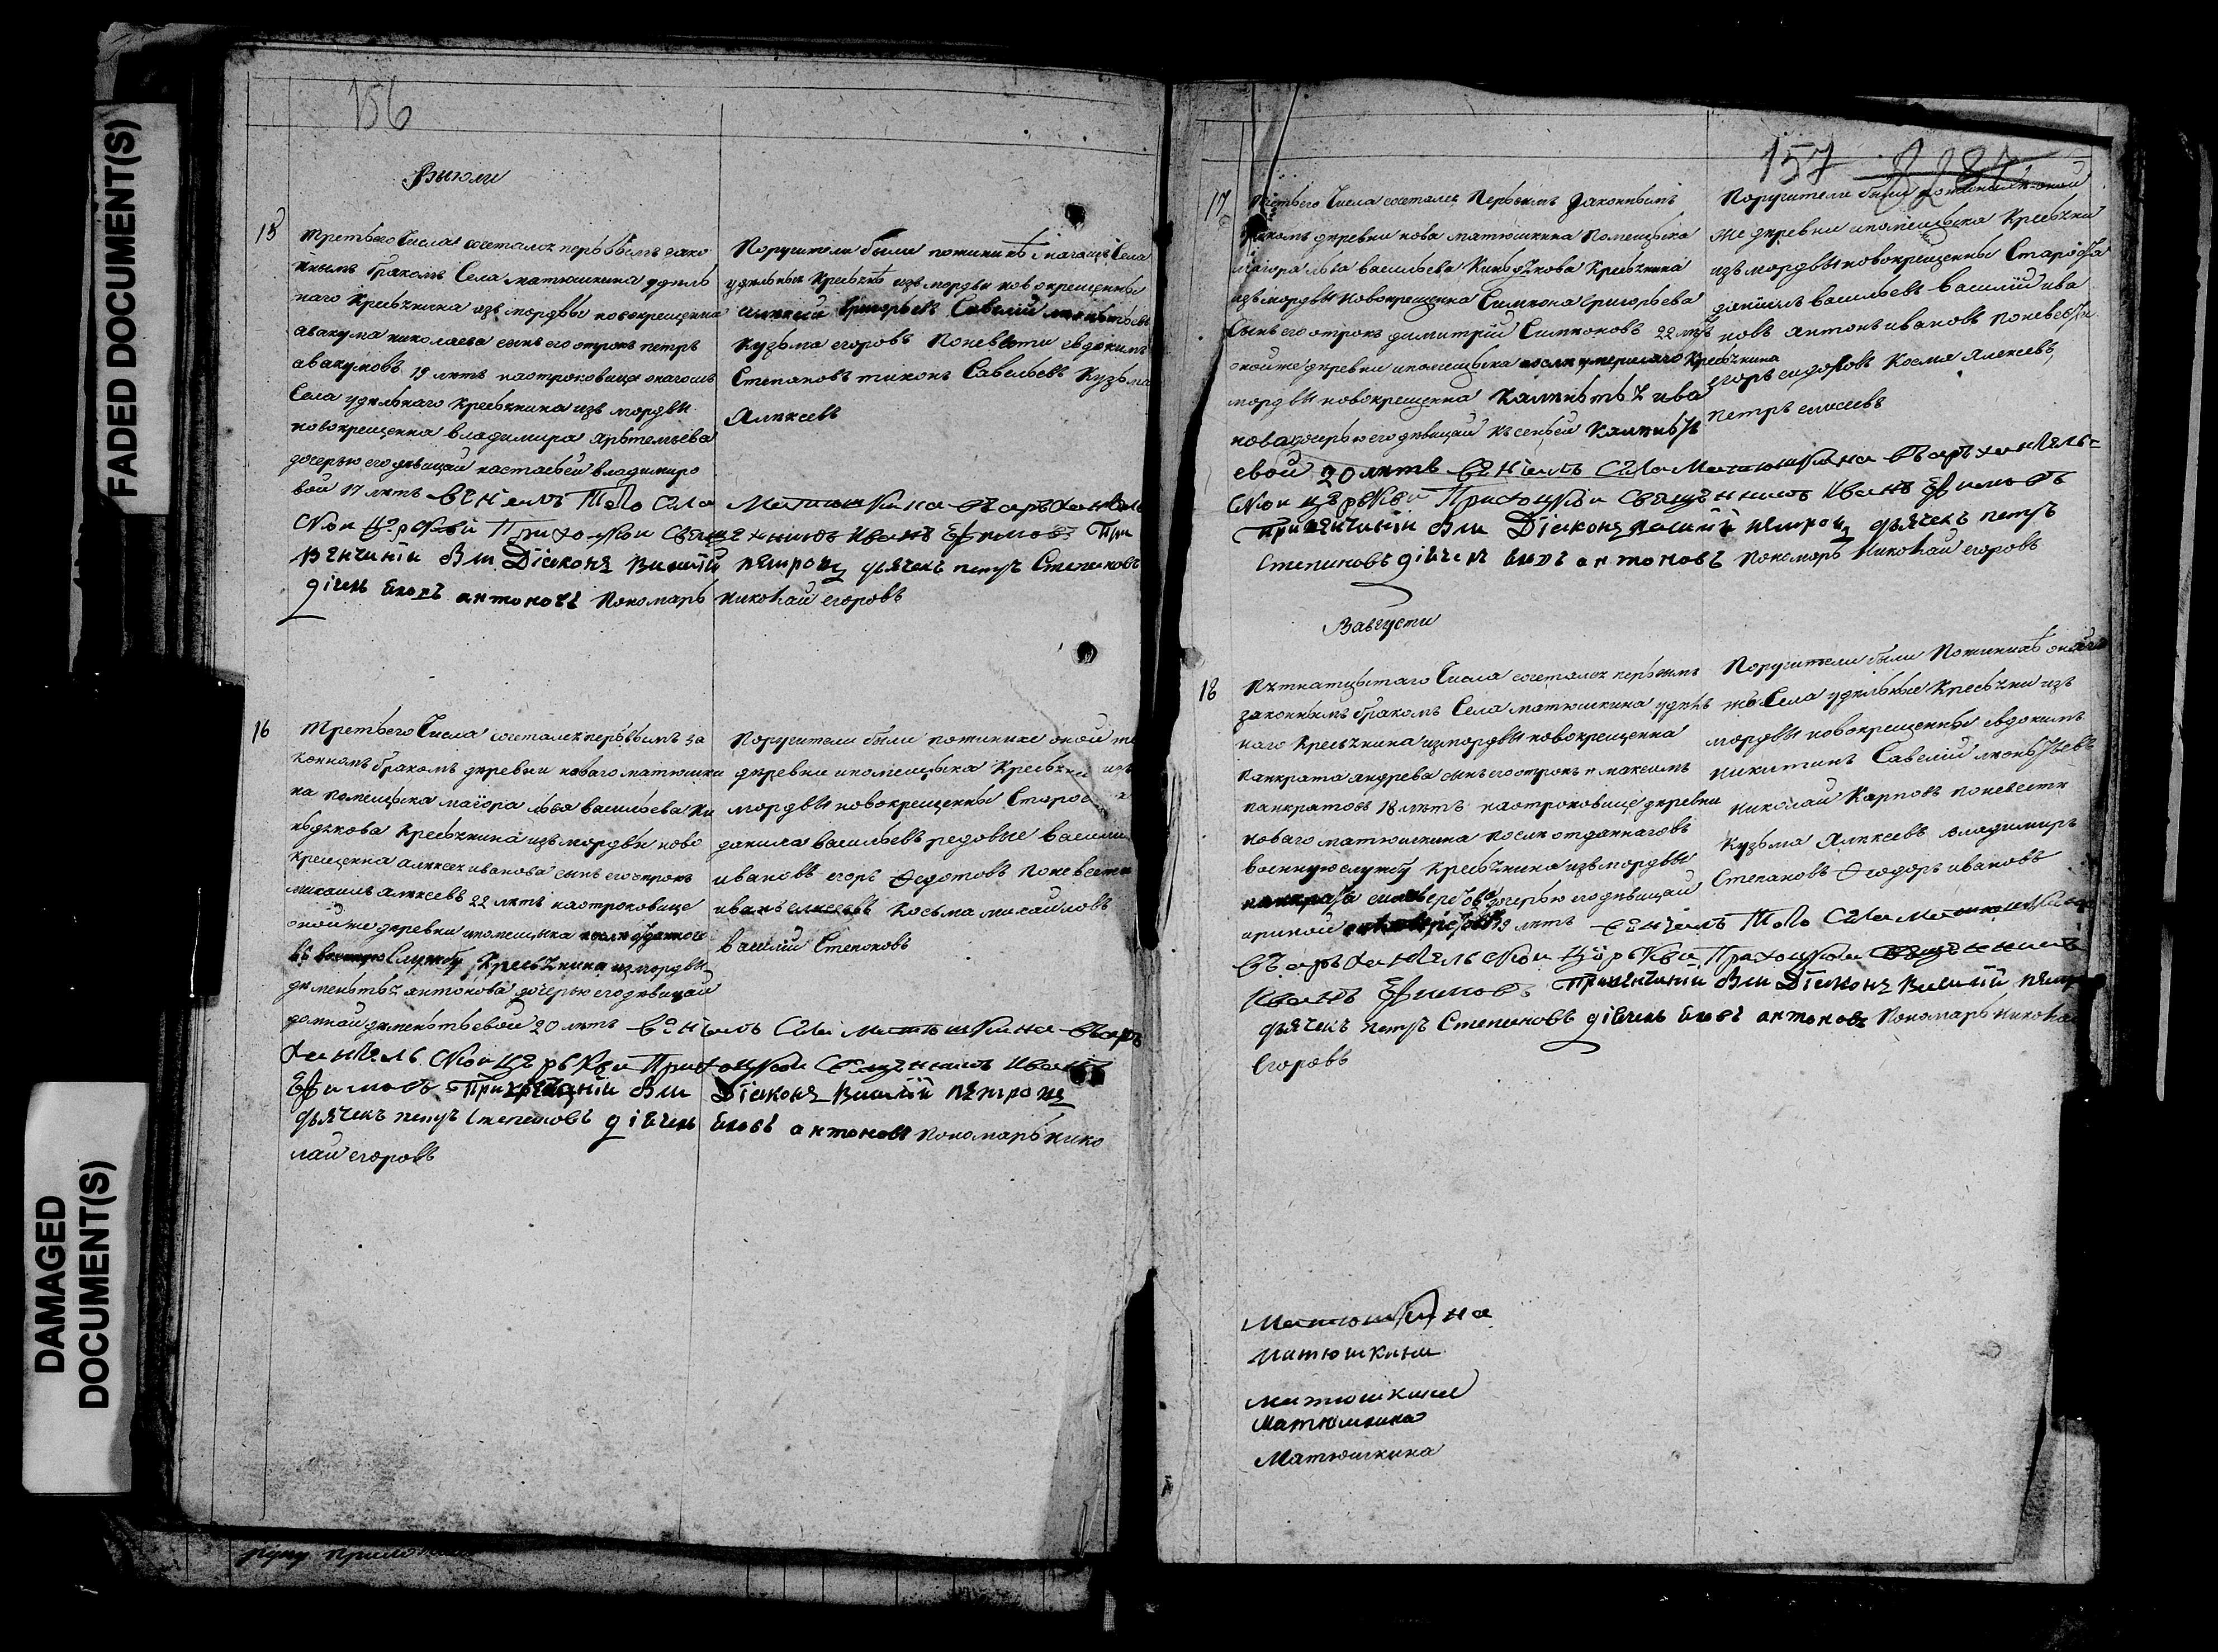 FADED DOCUMENT(S)
DAMAGED
DOCUMENT(S)
156
Виюли
15
третьего Числа сочетался первымъ зако
ннымъ бракомъ Села матюшкина удель
наго Крестьянина изъ мордвы новокрещенна
авакума николаева сынъ его отрокъ петръ
авакумовъ 19 летъ на отроковице онагожъ
Села удельнаго крестьянина изъ мордвы
новокрещенна владимира артемьева
дочерью его девицаи настасьеи владимиро
вои 17 летъ венчалъ того села Матюшкина архангель
скои церкви Приходскои Священникъ Иванъ Ефимовъ При
венчании были Диаконъ Василий петровъ дьячекъ петръ Степановъ
дьячекъ антоновъ Пономарь николаи егоровъ
Поручители были по женихе онагожъ Села
удельныя крестьяне изъ мордвы новокрещенны
алексей григорьевъ Савелий
Кузьма егоровъ по невести евдокимъ
Степановъ тихонъ Савельевъ Кузьма
Алексеевъ
16
третьего Числа сочетался первымъ за
коннымъ бракомъ деревни новаго матюшки
на помещика маиора льва васильева ки
ндякова крестьянина изъ мордвы ново
крещенна алексея иванова сынъ его отрокъ
михаилъ алексеевъ 22 летъ на отроковице
онои же деревни и помещика после отданнаго
въ военную Службу Крестьянина изъ мордвы
дементья антонова дочерью его девицаи
дементьевои 20 летъ венчалъ Села Матюшкина архангельскои церкви Приходскои Священникъ Иванъ
Ефимовъ При венчании были Диаконъ Василий петровъ
дьячекъ петръ Степановъ дьячекъ антоновъ Пономарь нико
лаи егоровъ
Поручители были по женихе онои же
деревни и помещика Крестьяне изъ
мордвы новокрещенны Староста
данила васильевъ редовые василий
ивановъ егоръ федотовъ по невести
иванъ елисеевъ Косьма михаиловъ
василий Степановъ
157
17
третьего Числа сочетался Первымъ Законнымъ
бракомъ деревни нова матюшкина Помещика
маиора льва васильева Киндякова Крестьянина
изъ мордвы новокрещенна Симиона григорьева
Сынъ его отрокъ димитрий Симионовъ 22 летъ
онои же деревни и помещика после умершаго крестьянина
мордвы новокрещенна Калентья ива
нова дочерью его девицаи ксеньеи Каленть
евои 20 летъ венчалъ Села Матюшкина архангель
скои церкви Приходскои Священникъ Иванъ Ефимовъ
При венчании были Диаконъ Василий петровъ дьячекъ петръ
Степановъ дьячекъ антоновъ Пономарь Николаи егоровъ
Поручители были по женихе онои
же деревни и помещика Крестьяне
изъ мордвы новокрещенны Староста
данилъ васильевъ василий ива
новъ антонъ ивановъ по невести
егоръ сидоровъ Косма Алексеевъ
петръ елисеевъ
Вавгусти
18
Пятнатцатаго Числа сочетался первымъ
законнымъ бракомъ Села матюшкина удель
наго Крестьянина из мордвы новокрещенна
панкрата андрева сынъ его отрокъ максимъ
панкратовъ 18 летъ на отроковице деревни
новаго матюшкина после отданнаго въ
военную службу крестьянина изъ мордвы
дочерью его девицаи
ириною 19 летъ венчалъ того Села Матюшкина
архангельскои церкви Приходскои Священникъ
Иванъ Ефимовъ При венчании были Диаконъ Василий петровъ
дьячекъ петръ Степановъ дьячекъ антоновъ Пономарь николаи
Егоровъ
Поручители были По женихе онаго
же Села удельные Крестьяне изъ
мордвы новокрещенны евдокимъ
никитинъ Савелий леонтьевъ
николаи Карповъ по невести
Кузьма Алексеевъ владимиръ
Степановъ Феодоръ ивановъ
Матюшкина
Матюшкина
Матюшкина
Матюшкина
Матюшкина
руку прило